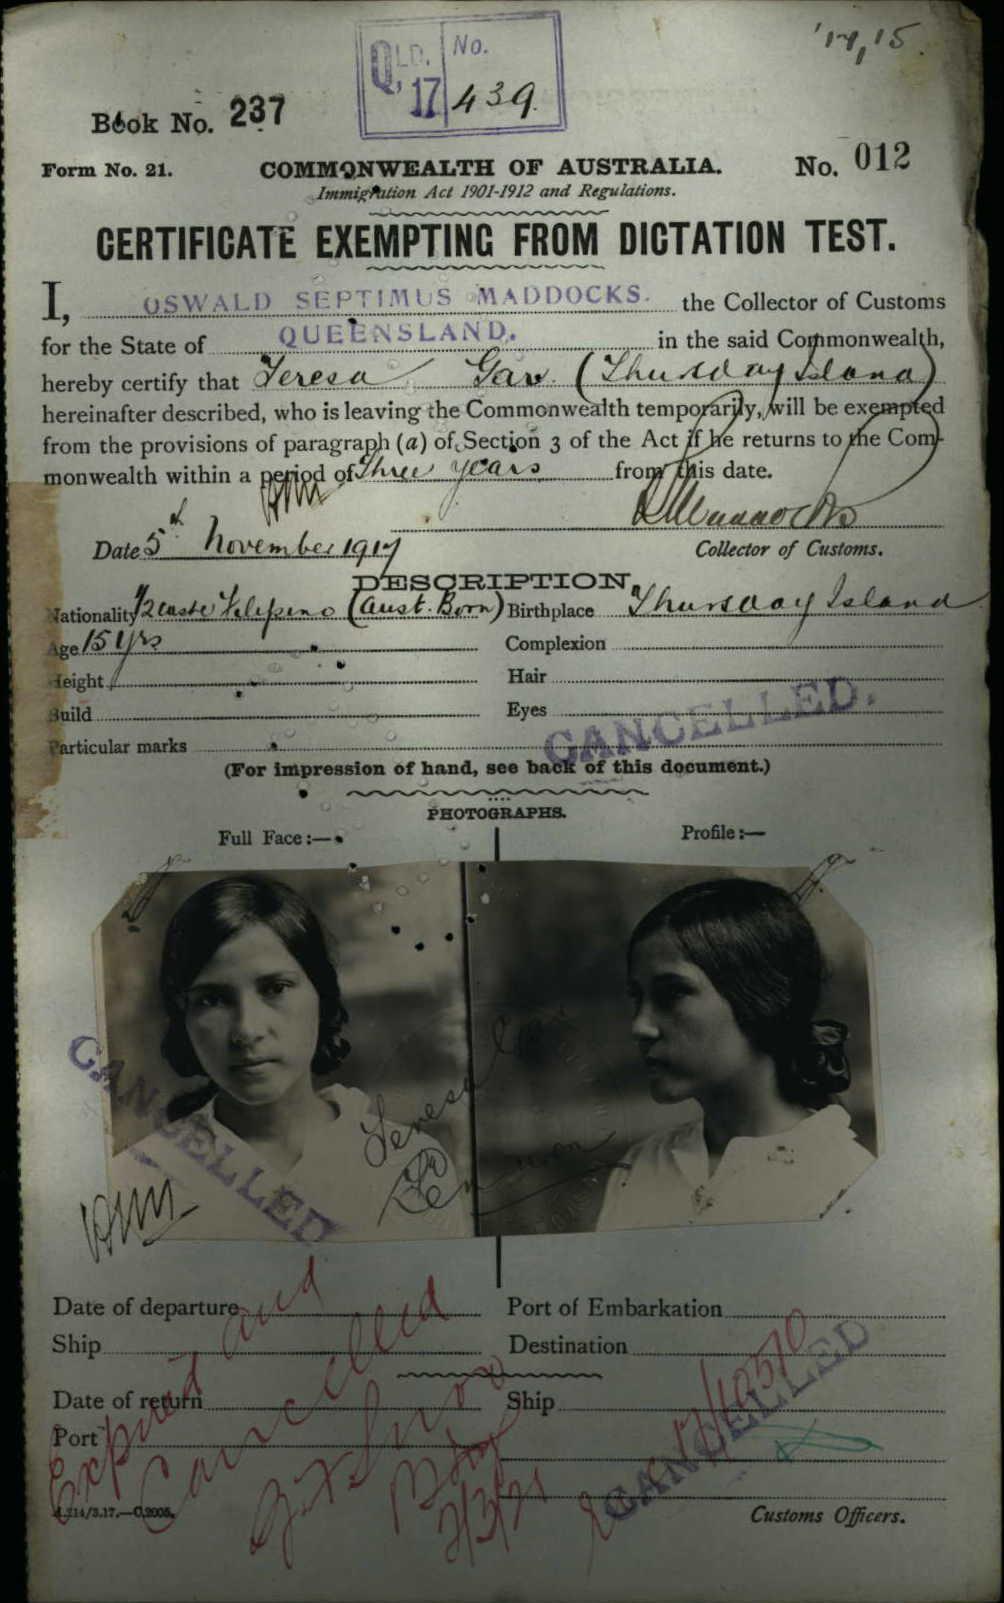 '17,15.
QLD. No.
17 439.
Book No. 237
Form No. 21. COMMONWEALTH OF AUSTRALIA. No. 012
Immigration Act 1901-1912 and Regulations.
CERTIFICATE EXEMPTING FROM DICTATION TEST.
I, OSWALD SEPTIMUS MADDOCKS. the Collector of Customs
for the State of QUEENSLAND. in the said Commonwealth,
hereby certify that Teresa Gar. (Thursday Island)
hereinafter described, who is leaving the Commonwealth temporarily, will be exempted
from the provisions of paragraph (a) of Section 3 of the Act if he returns to the Com-
monwealth within a period of Three years from this date.
Date 5th November 1917 Collector of Customs.
DESCRIPTION.
Nationality 1/2 caste Filipino (Aust. Born) Birthplace Thursday Island
Age 15 yrs Complexion
Height Hair
Build Eyes
Particular marks
CANCELLED.
(For impression of hand, see back of this document.)
PHOTOGRAPHS.
Full Face:— Profile:—
CANCELLED
Teresa
Date of departure Port of Embarkation
Ship Destination
Date of return Ship
Port
Expired and
Cancelled
2/3/21
CANCELLED
A.214/3.17.—C.2005. Customs Officers.